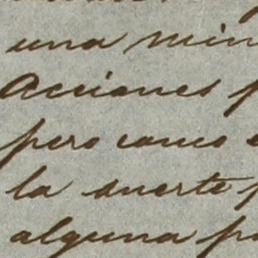 una min
Acciones p
pero como e
la suerte p
alguna pa